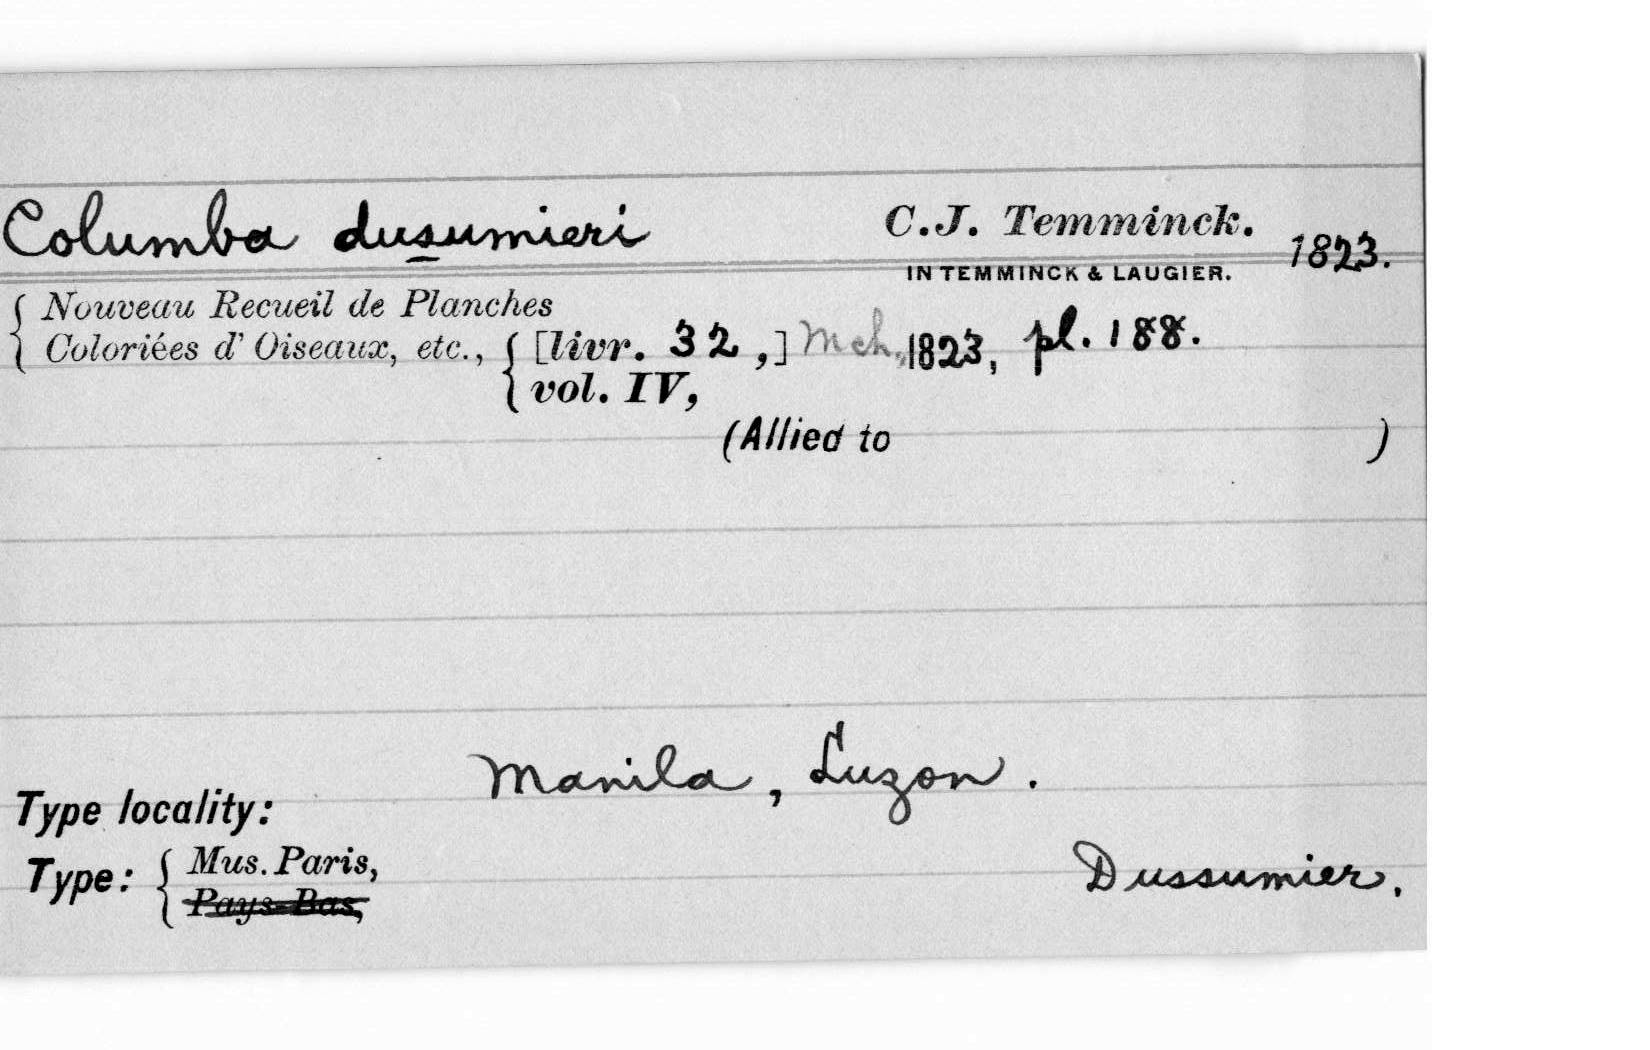 Columba dusumieri C.J. Temminck. 1823.
IN TEMMINCK & LAUGIER.
Nouveau Recueil de Planches
Coloriées d' Oiseaux, etc., [livr. 32,] Mch, 1823, pl. 188.
vol. IV,
(Allied to )
Manila, Luzon.
Type locality:
Type: Mus. Paris,
Pays-Bas,
Dussumier.